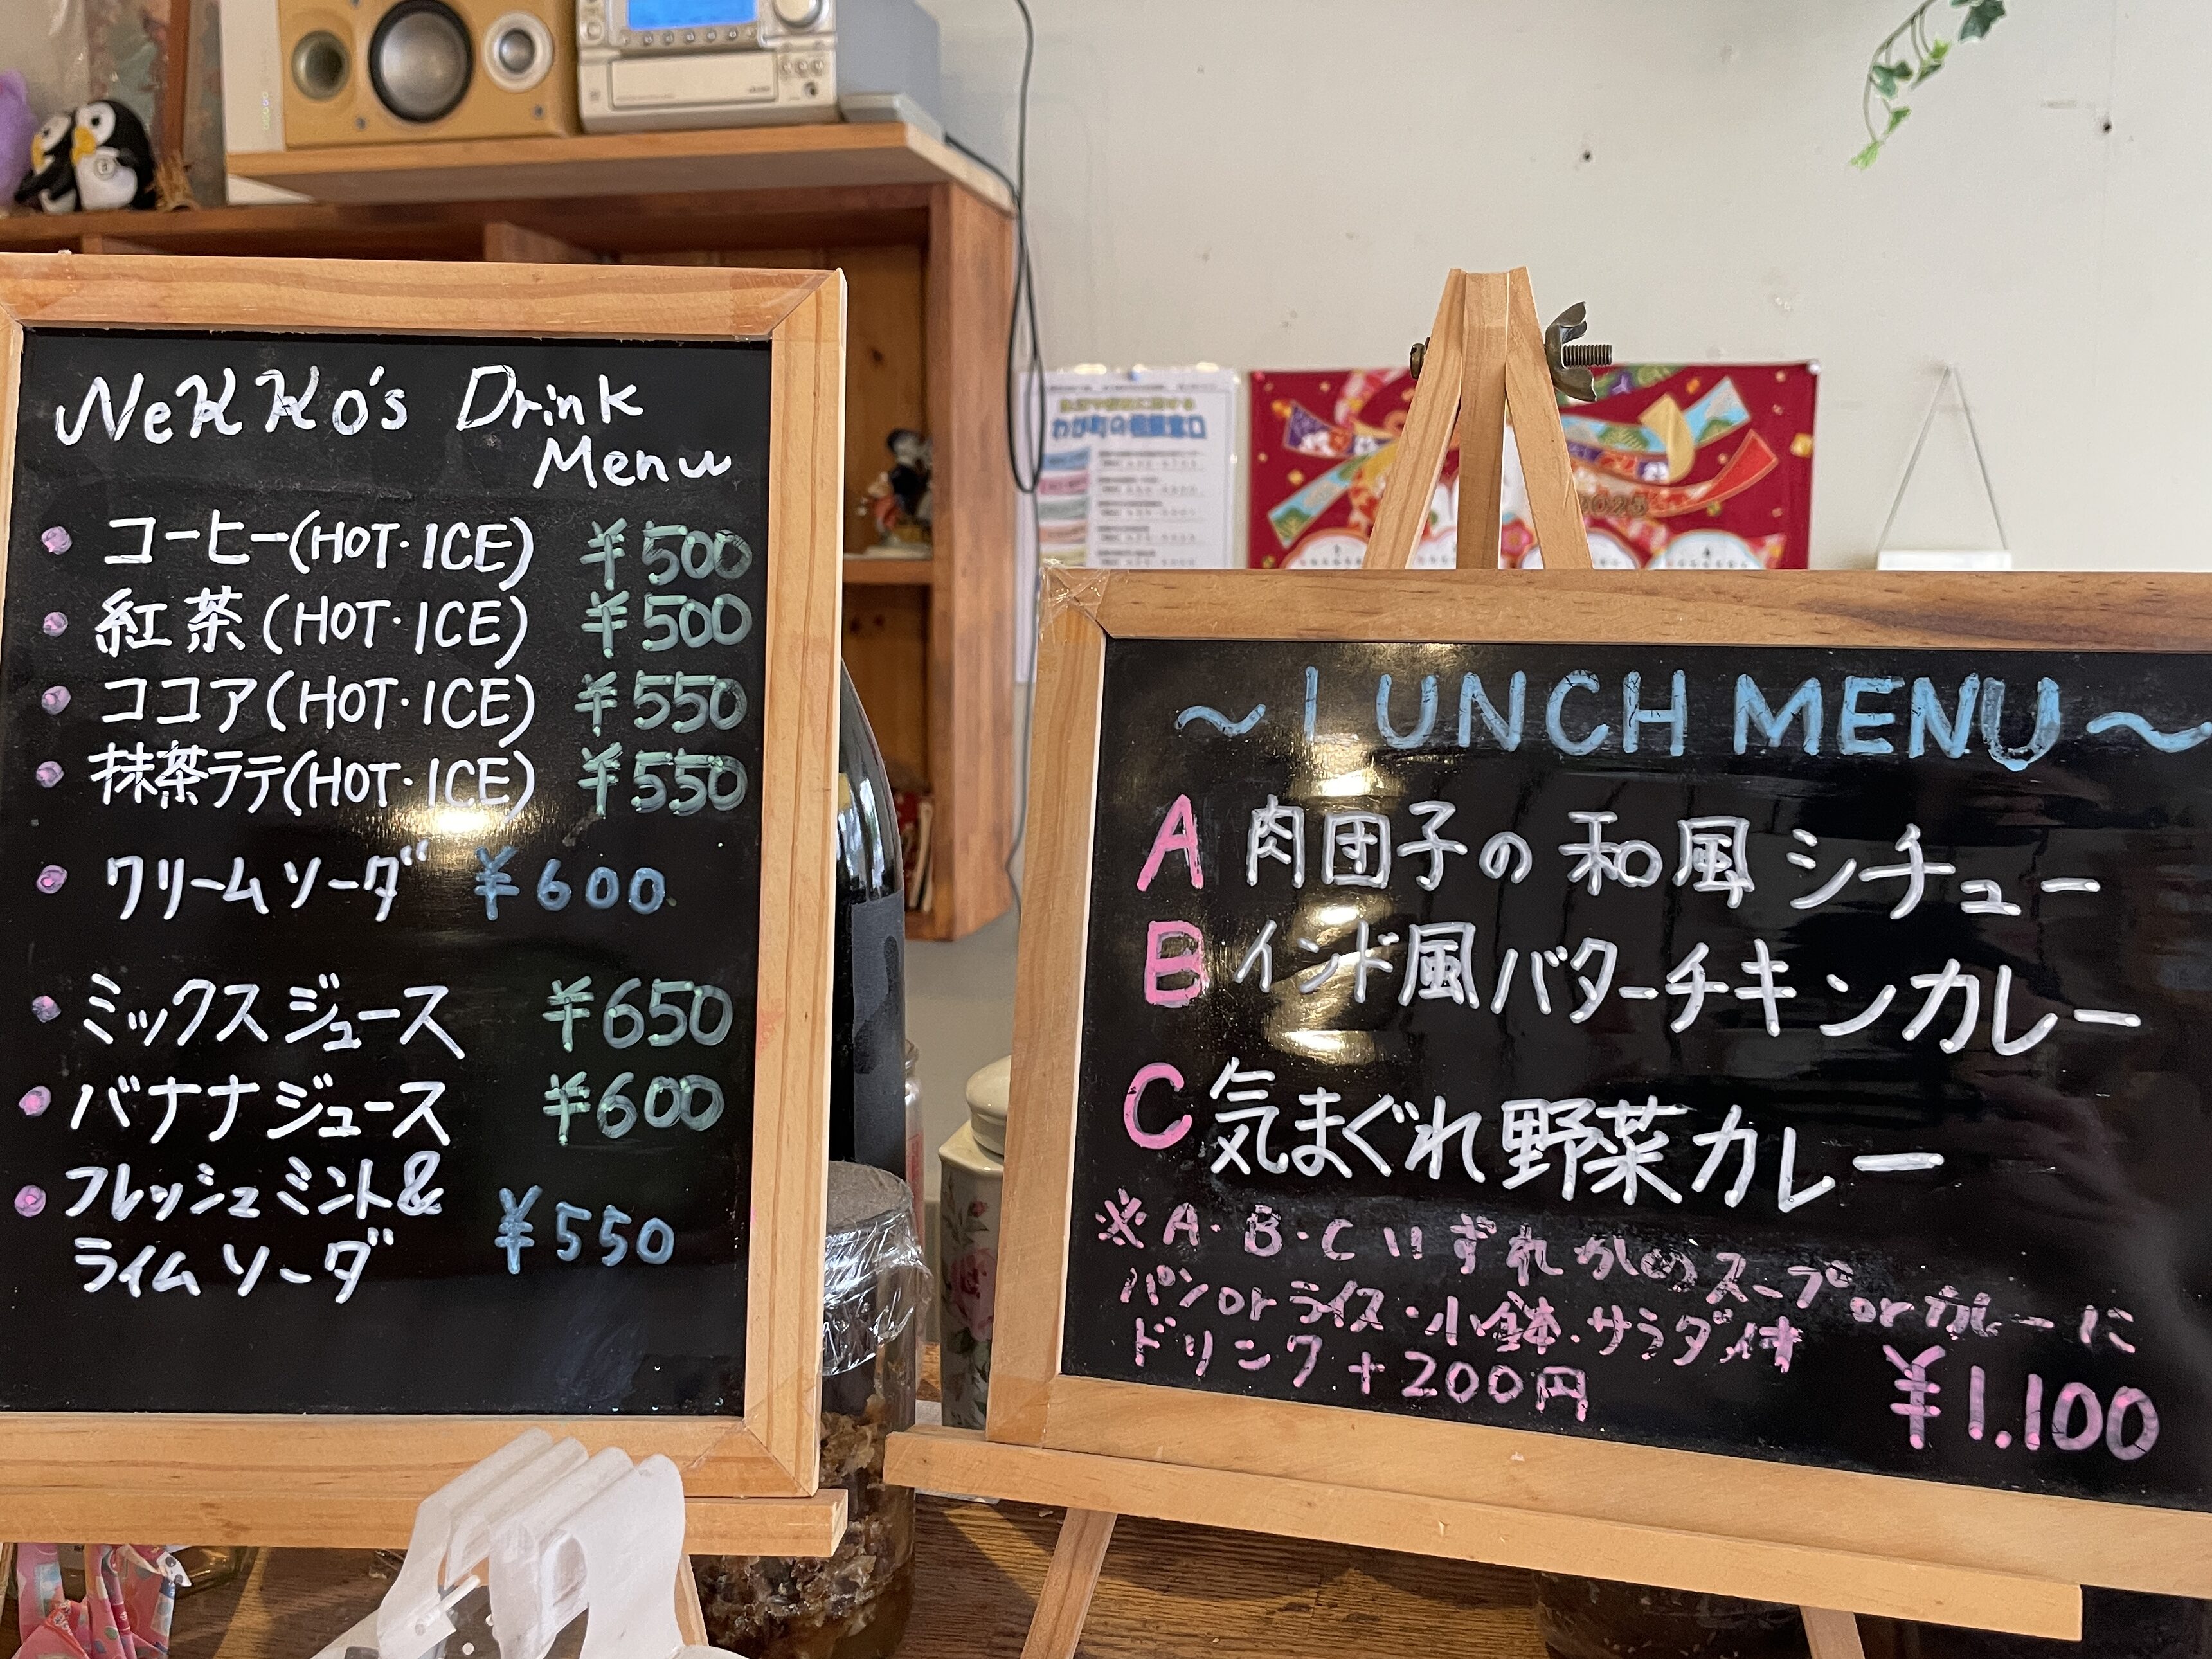 NeKKo's Drink
Menu
コーヒー(HOT・ICE) ¥500
紅茶(HOT・ICE) ¥500
ココア(HOT・ICE) ¥550
抹茶ラテ(HOT・ICE) ¥550
クリームソーダ ¥600
ミックスジュース ¥650
バナナジュース ¥600
フレッシュミント&
ライムソーダ ¥550
わが町の相談窓口
2025
～LUNCH MENU～
A 肉団子の和風シチュー
B インド風バターチキンカレー
C 気まぐれ野菜カレー
※A・B・Cいずれかのスープorカレーに
パンorライス・小鉢・サラダ付
ドリンク+200円
¥1.100